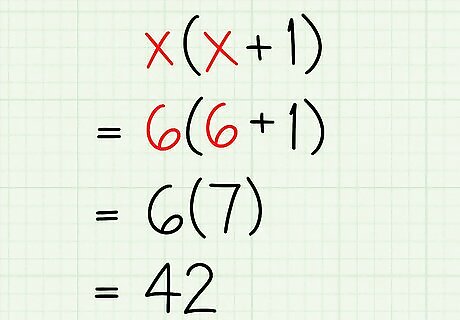 x(x+1)
= 6(6+1)
= 6(7)
= 42